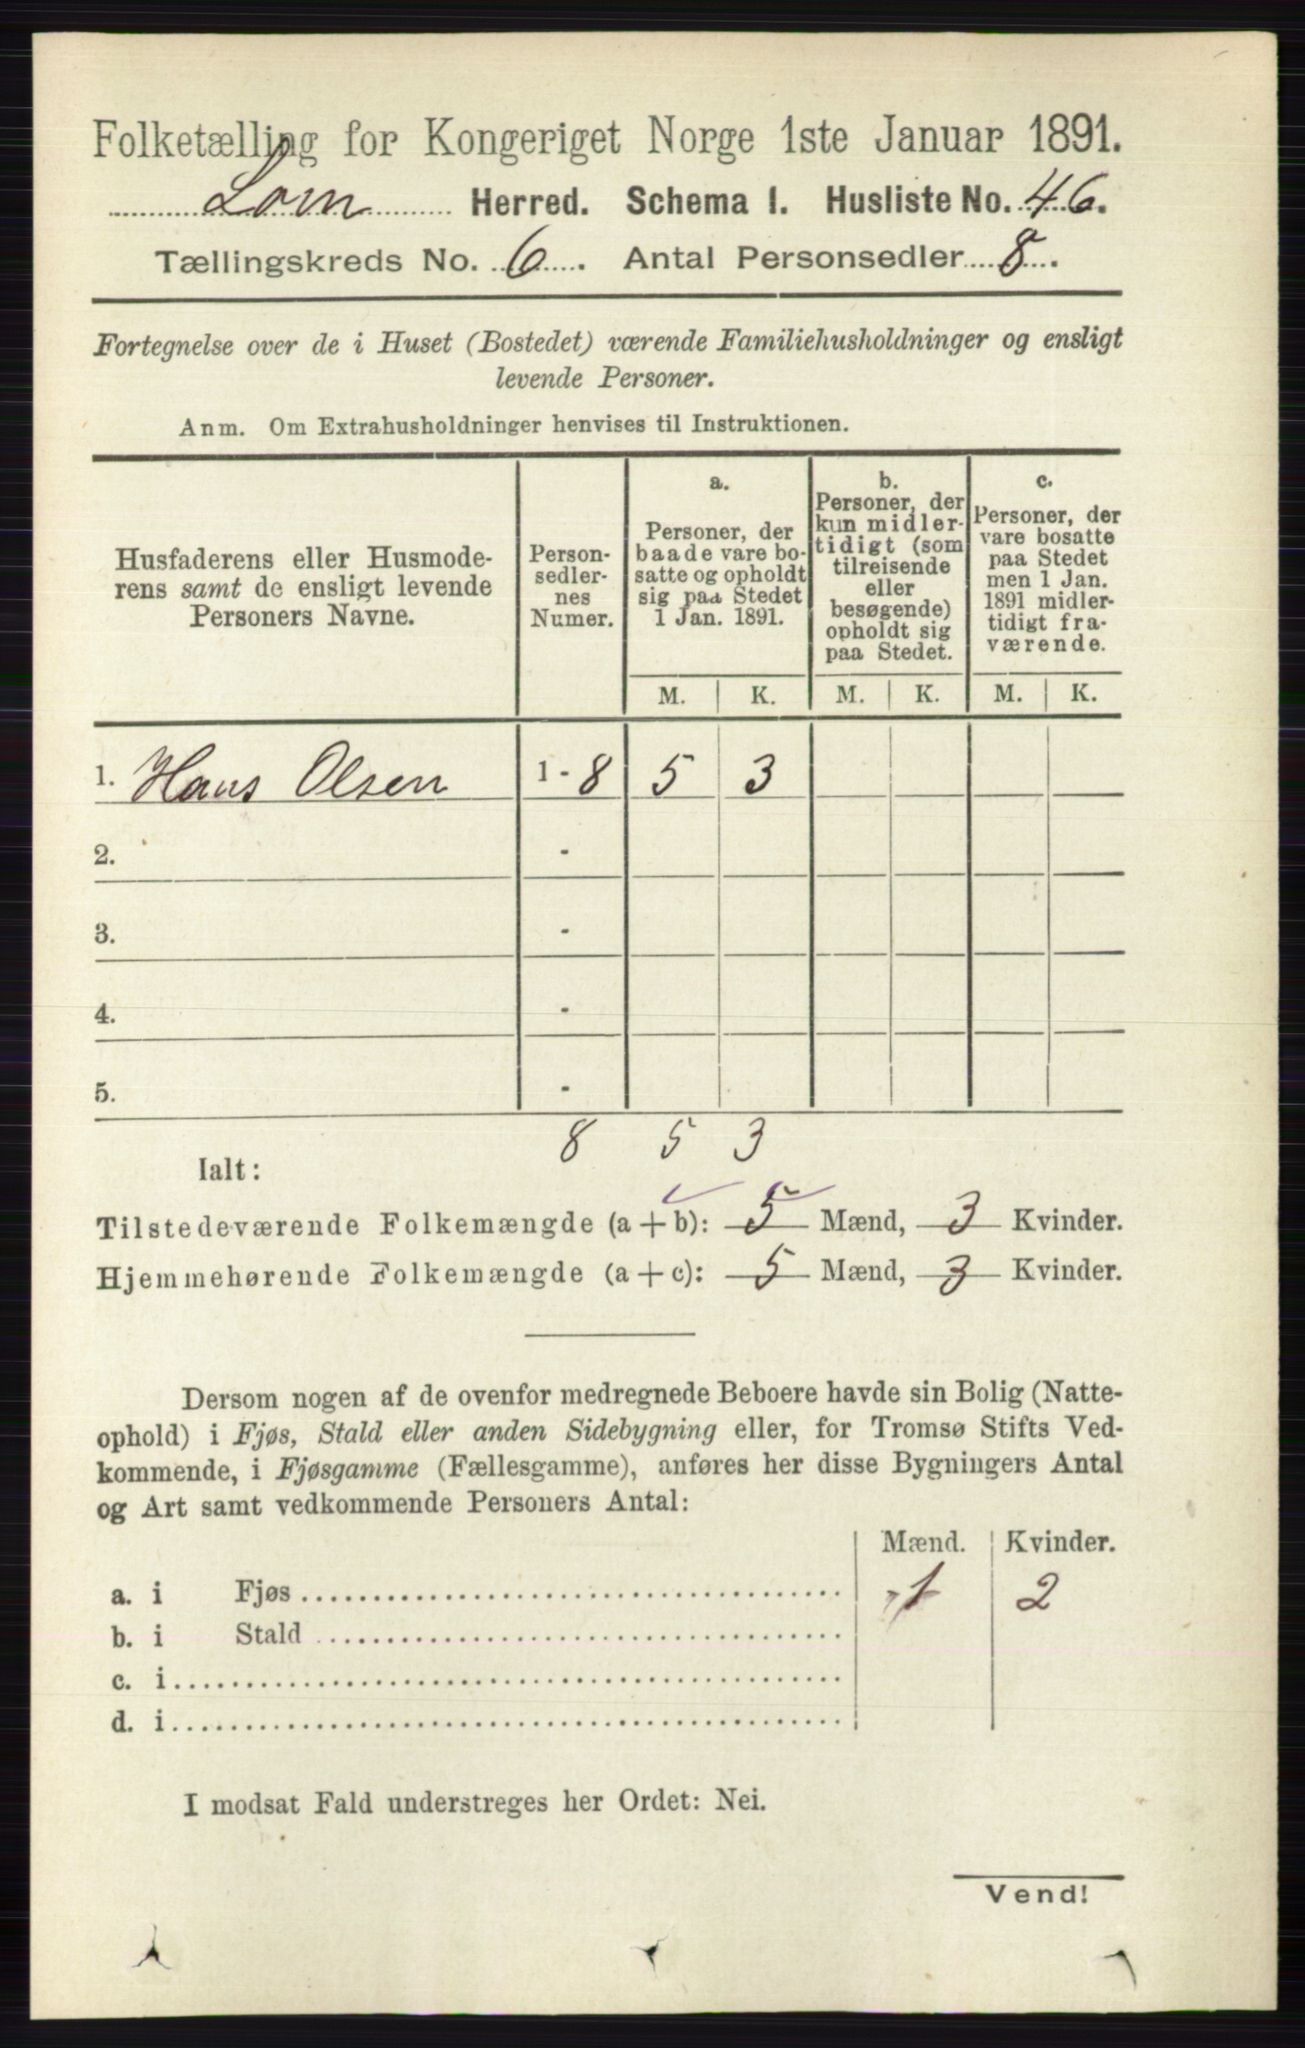 Folketælling for Kongeriget Norge 1ste Januar 1891.
Lom Herred. Schema I. Husliste No. 46.
Tællingskreds No. 6. Antal Personsedler 8.
Fortegnelse over de i Huset (Bostedet) værende Familiehusholdninger og ensligt
levende Personer.
Anm. Om Extrahusholdninger henvises til Instruktionen.
Husfaderens eller Husmode-
rens samt de ensligt levende
Personers Navne.
Person-
sedler-
nes
Numer.
a.
Personer, der
baade vare bo-
satte og opholdt
sig paa Stedet
1 Jan. 1891.
b.
Personer, der
kun midler-
tidigt (som
tilreisende
eller
besøgende)
opholdt sig
paa Stedet.
c.
Personer, der
vare bosatte
paa Stedet
men 1 Jan.
1891 midler-
tidigt fra-
værende.
M. K. M. K. M. K.
1. Hans Olsen 1 - 8 5 3
2. -
3. -
4. -
5. -
8 5 3
Ialt:
Tilstedeværende Folkemængde (a + b): 5 Mænd, 3 Kvinder.
Hjemmehørende Folkemængde (a + c): 5 Mænd, 3 Kvinder.
Dersom nogen af de ovenfor medregnede Beboere havde sin Bolig (Natte-
ophold) i Fjøs, Stald eller anden Sidebygning eller, for Tromsø Stifts Ved-
kommende, i Fjøsgamme (Fællesgamme), anføres her disse Bygningers Antal
og Art samt vedkommende Personers Antal:
Mænd. Kvinder.
a. i Fjøs 1 2
b. i Stald
c. i
d. i
I modsat Fald understreges her Ordet: Nei.
Vend!